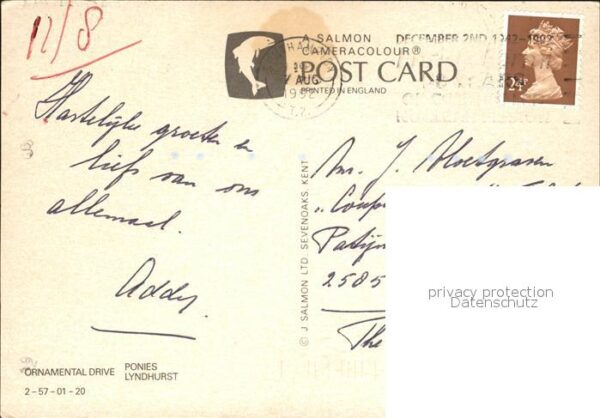 12/8
A SALMON
CAMERACOLOUR®
POST CARD
PRINTED IN ENGLAND
DECEMBER 2ND 1942-1992
AUG
1992
24P
Hartelijke groeten en
liefs van ons
allemaal.
Addy.
© J. SALMON LTD. SEVENOAKS. KENT
J.
Patijn
2585
The
privacy protection
Datenschutz
ORNAMENTAL DRIVE PONIES
LYNDHURST
2-57-01-20